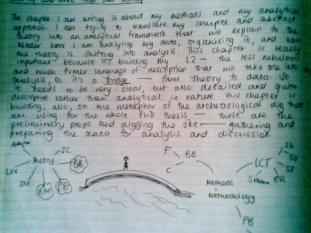 The chapter I am writing is about my methods and my analytical
approach. I am trying to translate my complex and abstract
theory into an analytical framework that will explain to the
reader how I am analysing my data, organising it, and how
my theory is shifting into analysis. This chapter is really
important because it's building my L2 — the less nebulous
and much firmer language of description that will take the
analysis. So it's a bridge — from theory to data. So
it needs to be very clear, but also detailed and quite
descriptive rather than analytical in nature. This chapter is
building, also, on the metaphor of the archaeological dig that
am using for the whole PhD thesis — these are the
preliminary preps and digging the site gathering and
preparing the data for analysis and discussion
JC
Theory
BB
LCT
F
BB
C
Methods
Methodology
ER
PB